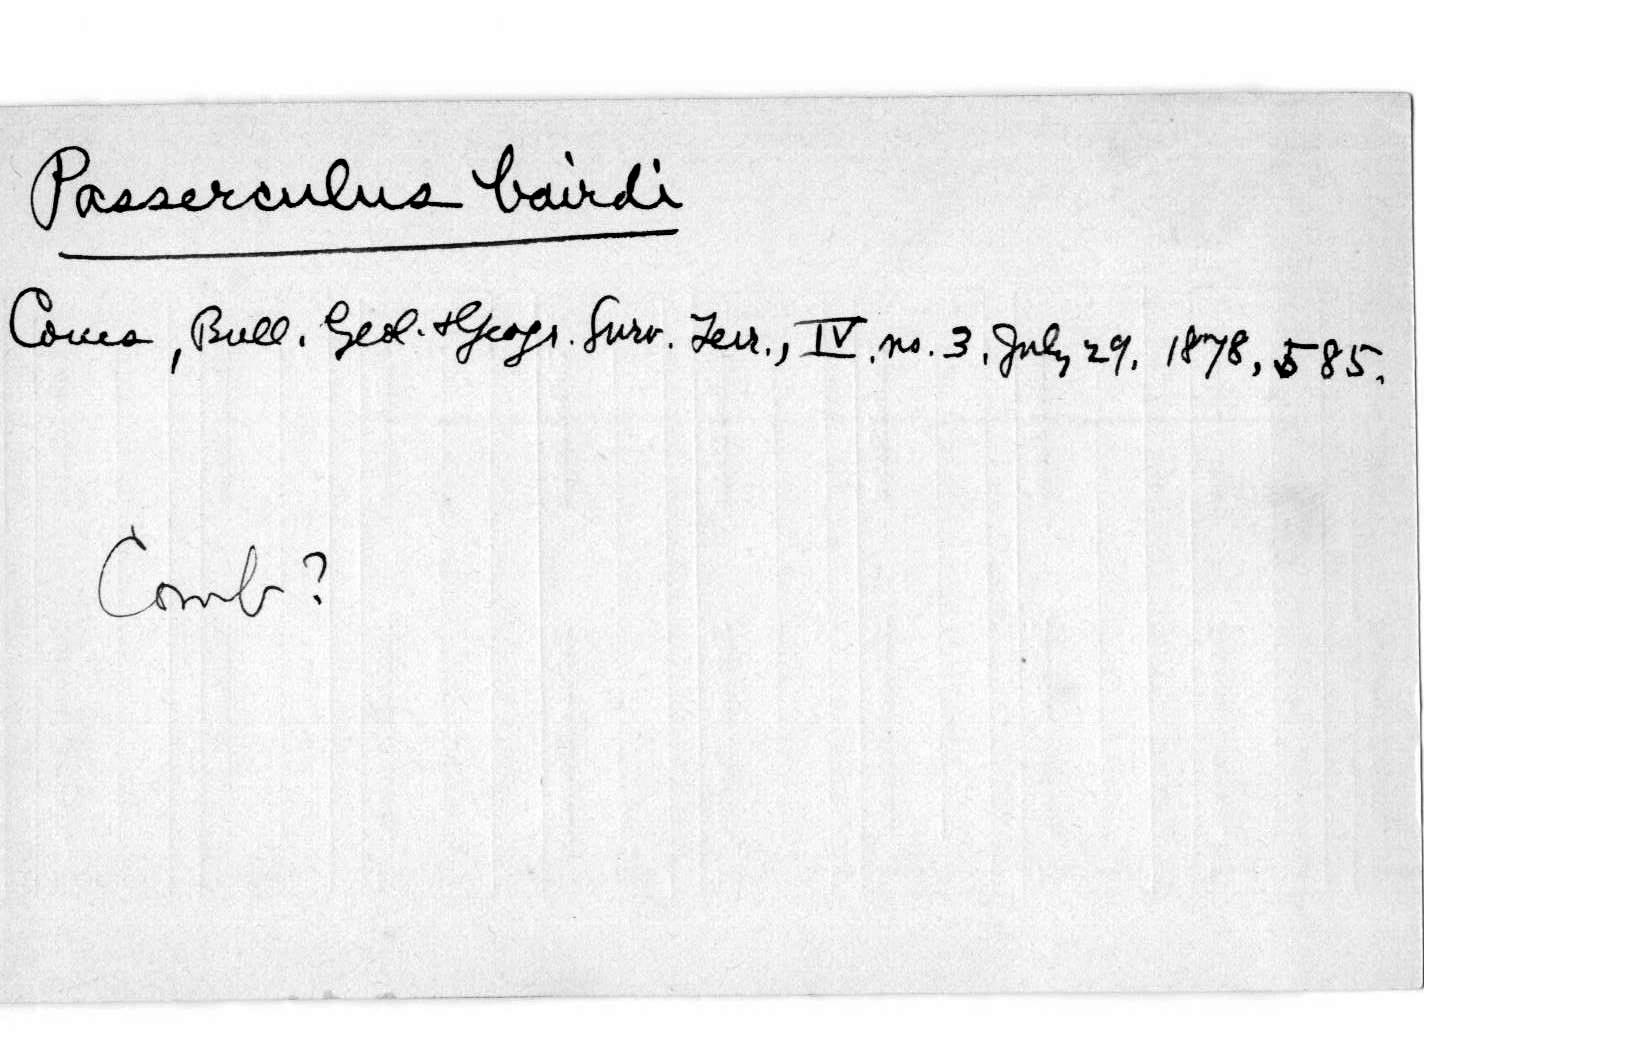 Passerculus bairdi
Coues, Bull. Geol. & Geogr. Surv. Terr., IV, no. 3, July 29, 1878, 585.
Comb?